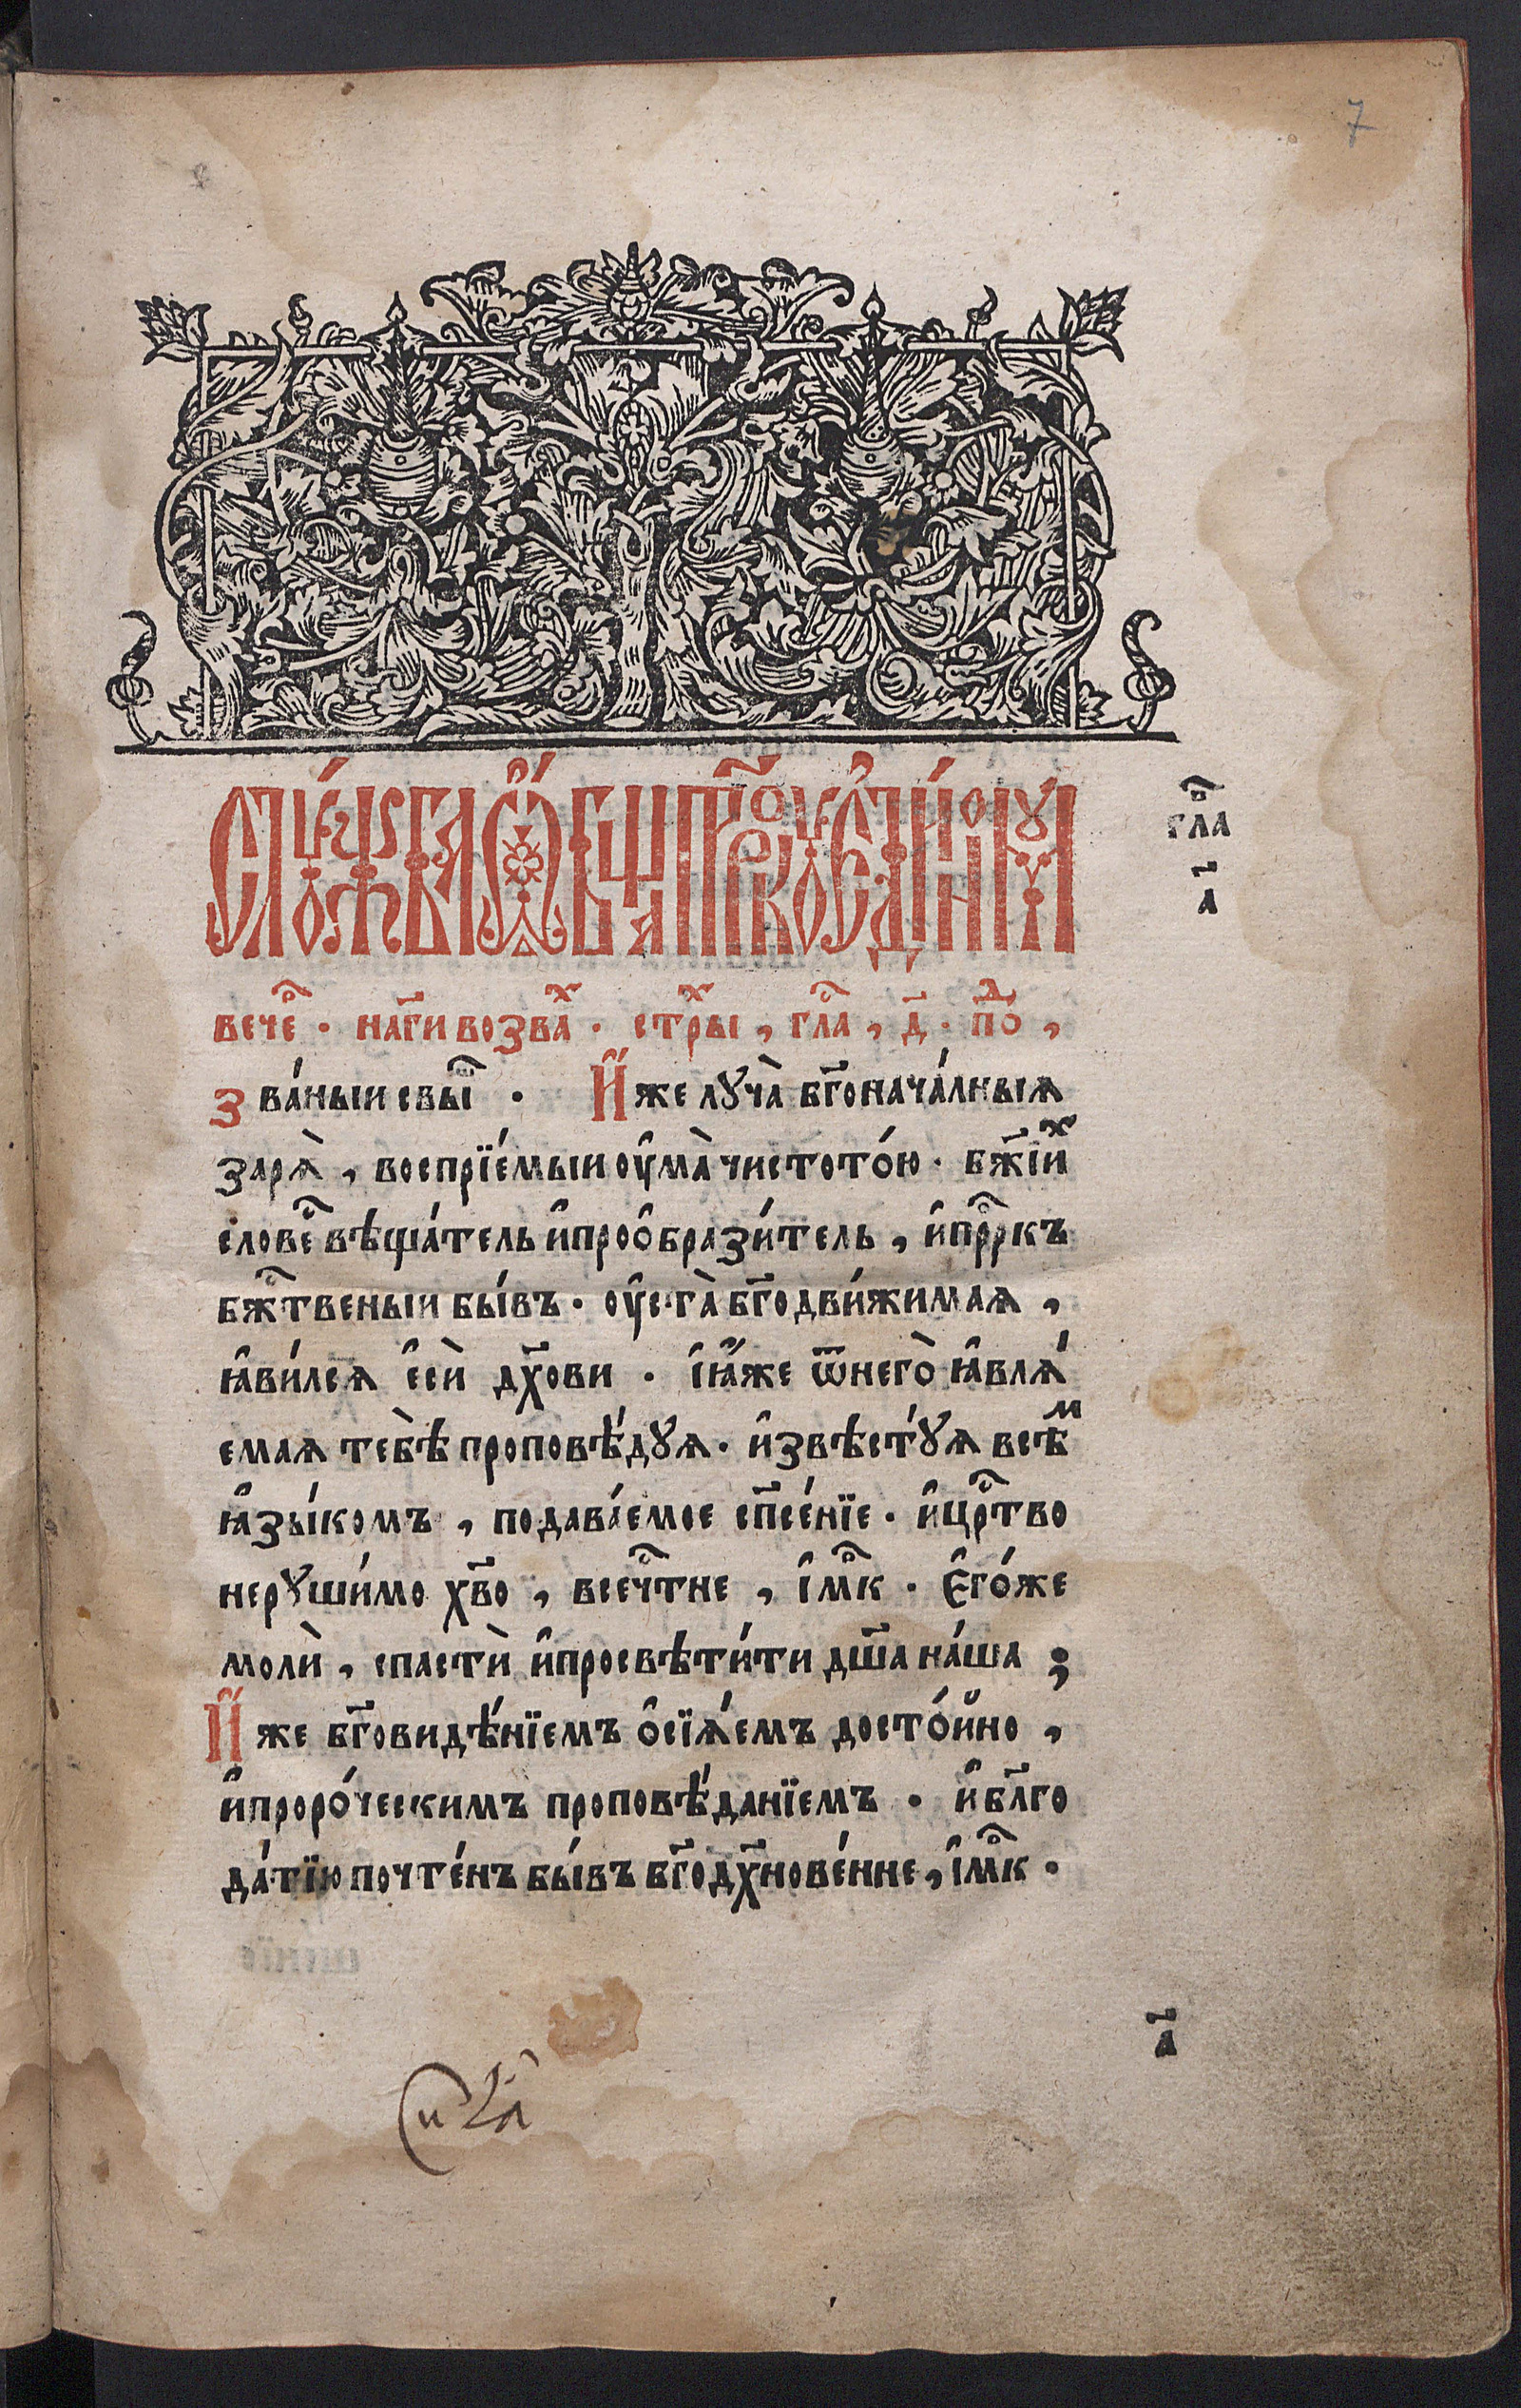 7
гла҃
а҃
вече҃ . на гд҃и возва́х . стⷯры , гла҃ , д҃ . по҃д ,
Зва́ныи свы҃ш . И҆́же лꙋча̀ бг҃онача́лныѧ
зарѧ̀ , воспрїе́мыи ᲂу҆ма̀ чистото́ю . бж҃їиⷯ
слове҃с вѣща́тель и҆проѻ҆брази́тель , и҆прⷪ҇ркъ
бжⷭ҇твеныи бы́въ . ᲂу҆ста̀ бг҃одви́жимаѧ ,
ꙗ҆ви́лсѧ є҆сѝ дх҃ови . і҆ꙗ҆́же ѿнего̀ ꙗ҆влѧ́
емаѧ тебѣ̀ проповѣ́дꙋѧ . и҆звѣстꙋ́ѧ всѣⷨ
ꙗ҆зы́комъ , подава́емое сп҃се́нїе . и҆црⷭ҇тво
нерꙋши́мо хв҃о , всечⷭ҇тне , і҆мⷬ҇к . Є҆го́же
молѝ , спастѝ и҆просвѣти́ти дш҃а на́ша ;
И҆́же бг҃овидѣ́нїемъ ѻ҆сїѧ́емъ досто́йно ,
и҆проро́ческимъ проповѣ́данїемъ . и҆бл҃го
да́тїю почте́нъ бы́въ бг҃одх҃нове́нне , і҆мⷬ҇к .
а҃